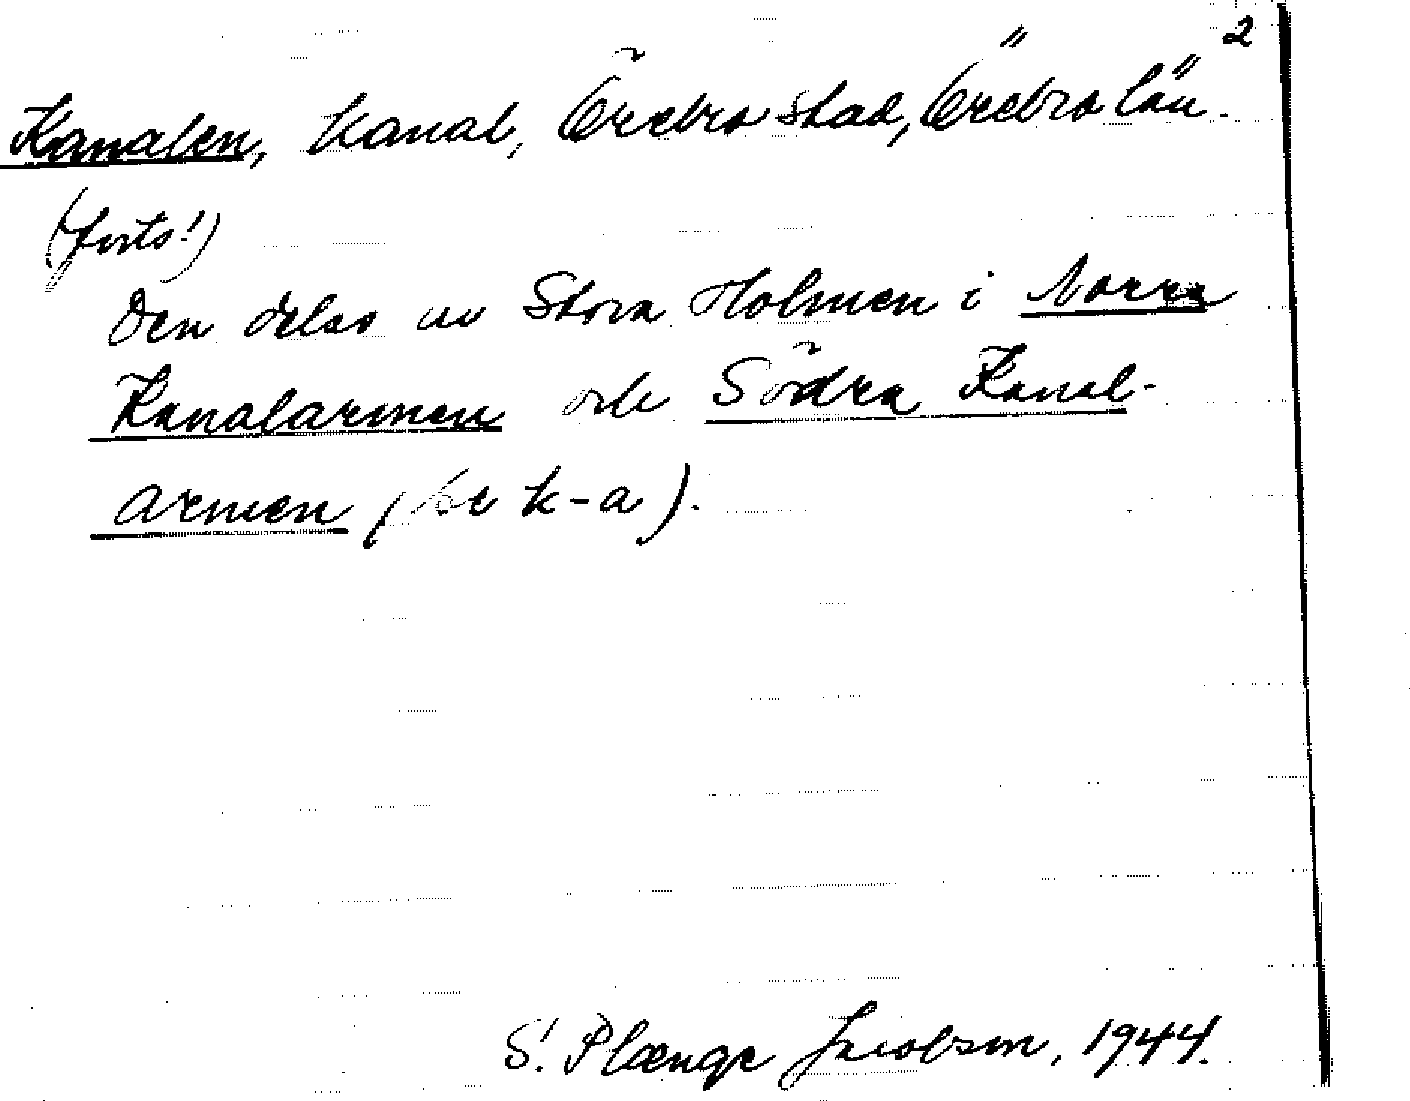 2
Kanalen, kanal, Örebro stad, Örebro län.
(forts!)
Den delas av Stora Holmen i Norra
Kanalarmen och Södra Kanal-
armen (se k-a).
S. Plænge Jacobson, 1944.